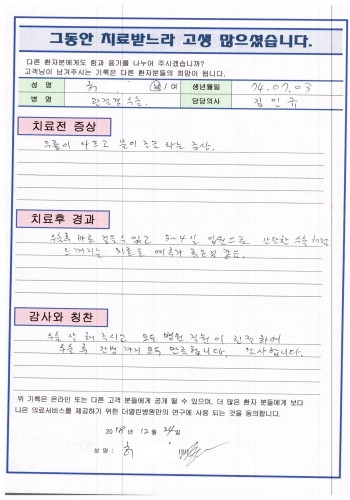 그동안 치료받느라 고생 많으셨습니다.
다른 환자분에게도 힘과 용기를 나누어 주시겠습니까?
고객님이 남겨주시는 기록은 다른 환자분들의 희망이 됩니다.
성 명 허 남/여 생년월일 74.07.03
병 명 관절경 수술. 담당의사 김민규
치료전 증상
무릎이 아프고 붓이 라는 증상.
치료후 경과
수술후 바로 걸을수 있고 3~4일 입원으로 간단한 수술처럼
느껴지는 치료로 예측과
감사와 칭찬
수술 잘 해 주시고 모두 병원 직원이 친절하여
수술 후 간병 까지 모두 만족합니다. 감사합니다.
위 기록은 온라인 또는 다른 고객 분들에게 공개 될 수 있으며, 더 많은 환자 분들에게 보다
나은 의료서비스를 제공하기 위한 더열린병원만의 연구에 사용 되는 것을 동의합니다.
2018년 12월 24일
성 명 : 허 (인)